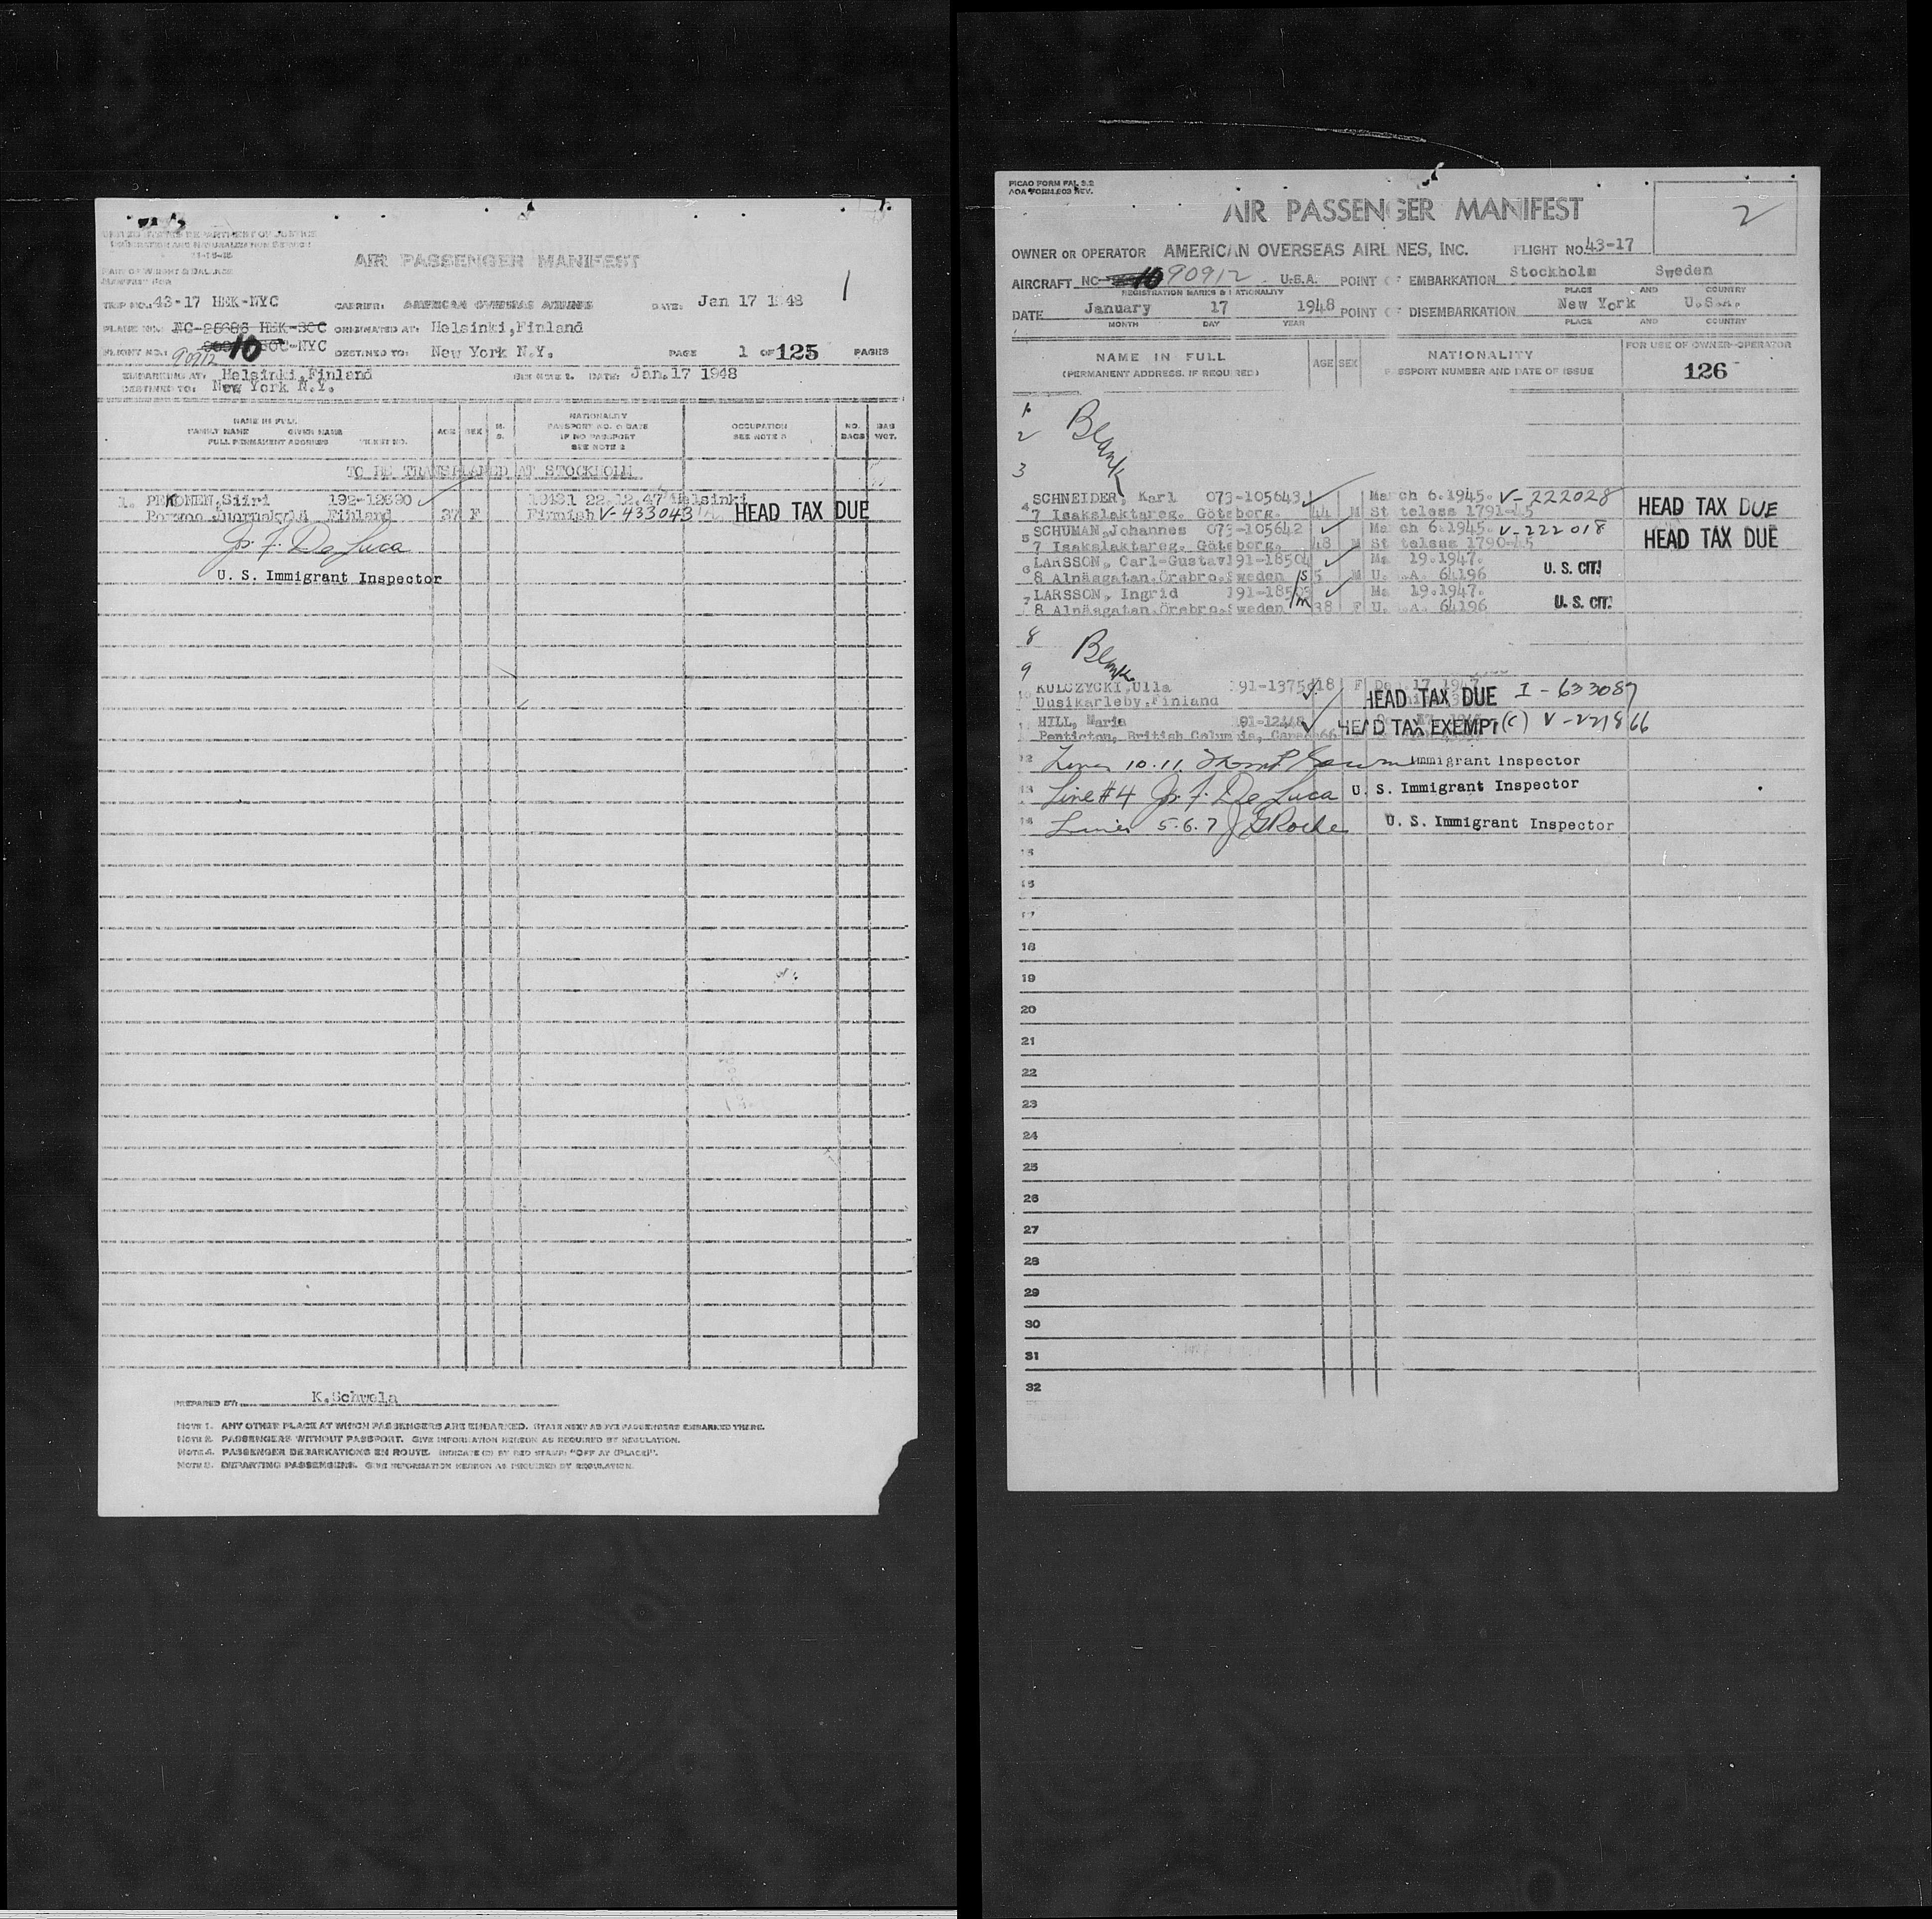 UNITED STATES DEPARTMENT OF JUSTICE
IMMIGRATION AND NATURALIZATION SERVICE
AIR PASSENGER MANIFEST
1
TRIP NO.: 43-17 HEK-NYC CARRIER: AMERICAN OVERSEAS AIRLINES DATE: Jan 17 1948
PLANE NO.: NC-25686 HEK-SOC ORIGINATED AT: Helsinki,Finland
10 SOC-NYC
FLIGHT NO.: 90912 DESTINED TO: New York N.Y. PAGE 1 OF 125 PAGES
EMBARKING AT: Helsinki,Finland SEE NOTE 1. DATE: Jan.17 1948
DESTINED TO: New York N.Y.
NAME IN FULL
FAMILY NAME GIVEN NAME
FULL PERMANENT ADDRESS TICKET NO.
AGE SEX M. S.
NATIONALITY
PASSPORT NO. & DATE
IF NO PASSPORT
SEE NOTE 2
OCCUPATION
NO. BAGS BAG WGT.
TO BE TRANSPLANED AT STOCKHOLM
1. PEKONEN,Siiri 192-12690 22.12.47 Helsinki
Finland 27 F Finnish V-433043 HEAD TAX DUE
Jos. F. De Luca
U. S. Immigrant Inspector
PREPARED BY: K.Schwela
NOTE 1. ANY OTHER PLACE AT WHICH PASSENGERS ARE EMBARKED. STATE NEXT ABOVE PASSENGERS EMBARKED THERE.
NOTE 2. PASSENGERS WITHOUT PASSPORT. GIVE INFORMATION HEREON AS REQUIRED BY REGULATION.
NOTE 4. PASSENGER DEBARKATIONS EN ROUTE. INDICATE (S) BY RED STAMP: "OFF AT (PLACE)".
DEPARTING PASSENGERS. GIVE INFORMATION HEREON AS REQUIRED BY REGULATION.
PICAO FORM FAL 2.2
AOA FORM 203 REV.
AIR PASSENGER MANIFEST
2
OWNER OR OPERATOR AMERICAN OVERSEAS AIRLINES, INC. FLIGHT NO. 43-17
AIRCRAFT NC- 10 90912 U.S.A. POINT OF EMBARKATION Stockholm Sweden
REGISTRATION MARKS & NATIONALITY PLACE AND COUNTRY
DATE January 17 1948 POINT OF DISEMBARKATION New York U.S.A.
MONTH DAY YEAR PLACE AND COUNTRY
NAME IN FULL
(PERMANENT ADDRESS, IF REQUIRED)
AGE SEX
NATIONALITY
PASSPORT NUMBER AND DATE OF ISSUE
FOR USE OF OWNER-OPERATOR
126
1
2 Blank
3
4 SCHNEIDER, Karl 073-105643 March 6.1945. V-222028 HEAD TAX DUE
7 Isakslaktareg. Göteborg. 44 M St teless 1791-45
5 SCHUMAN,Johannes 073-105642 March 6.1945. V-222018 HEAD TAX DUE
7 Isakslaktareg. Göteborg. 48 M St teless 1790-45
6 LARSSON, Carl-Gustav 191-18504 Ma 19.1947. U. S. CIT.
8 Alnäsgatan.Örebro.Sweden /S 5 M U. .A. 64196
7 LARSSON, Ingrid Ma 19.1947. U. S. CIT.
8 Alnäsgatan.Örebro.Sweden /m 38 F U. .A. 64196
8
9 Blank
10 KULCZYCKI,Ulla 91-1375 18 F De 17 1947 HEAD TAX DUE I-633087
Uusikarleby,Finland
11 HILL, Maria HEAD TAX EXEMPT (C) V-221866
Penticton, British Columbia, Canada 66
12 Lines 10.11. Immigrant Inspector
13 Line #4 Jos. F. De Luca U. S. Immigrant Inspector
14 Lines 5.6.7 J G Roche U. S. Immigrant Inspector
15
16
17
18
19
20
21
22
23
24
25
26
27
28
29
30
31
32